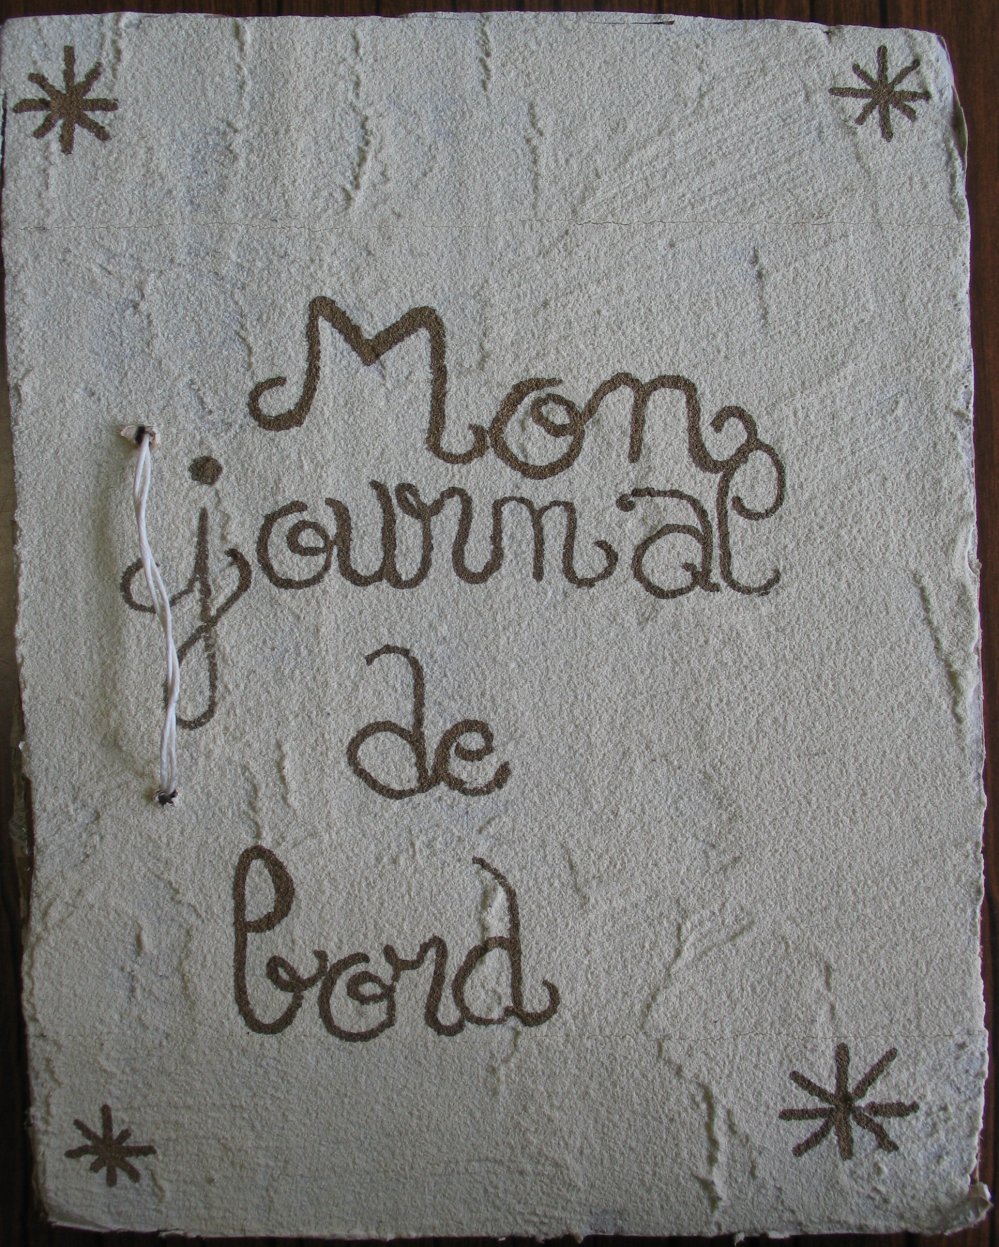 Mon
journal
de
bord